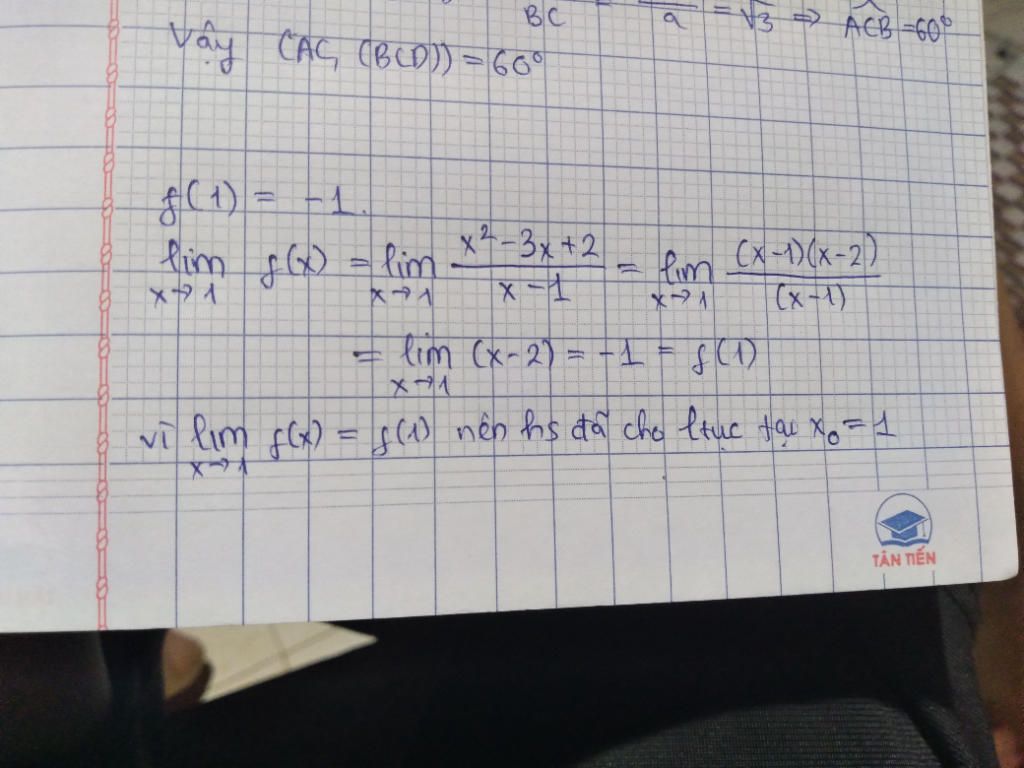 BC = a = √3 ⇒ ACB = 60°
Vậy (AC, (BCD)) = 60°
f(1) = -1.
lim x→1 f(x) = lim x→1 (x² - 3x + 2)/(x - 1) = lim x→1 (x-1)(x-2)/(x-1)
= lim x→1 (x-2) = -1 = f(1)
vì lim x→1 f(x) = f(1) nên hs đã cho ltục tại x₀ = 1
TÂN TIẾN